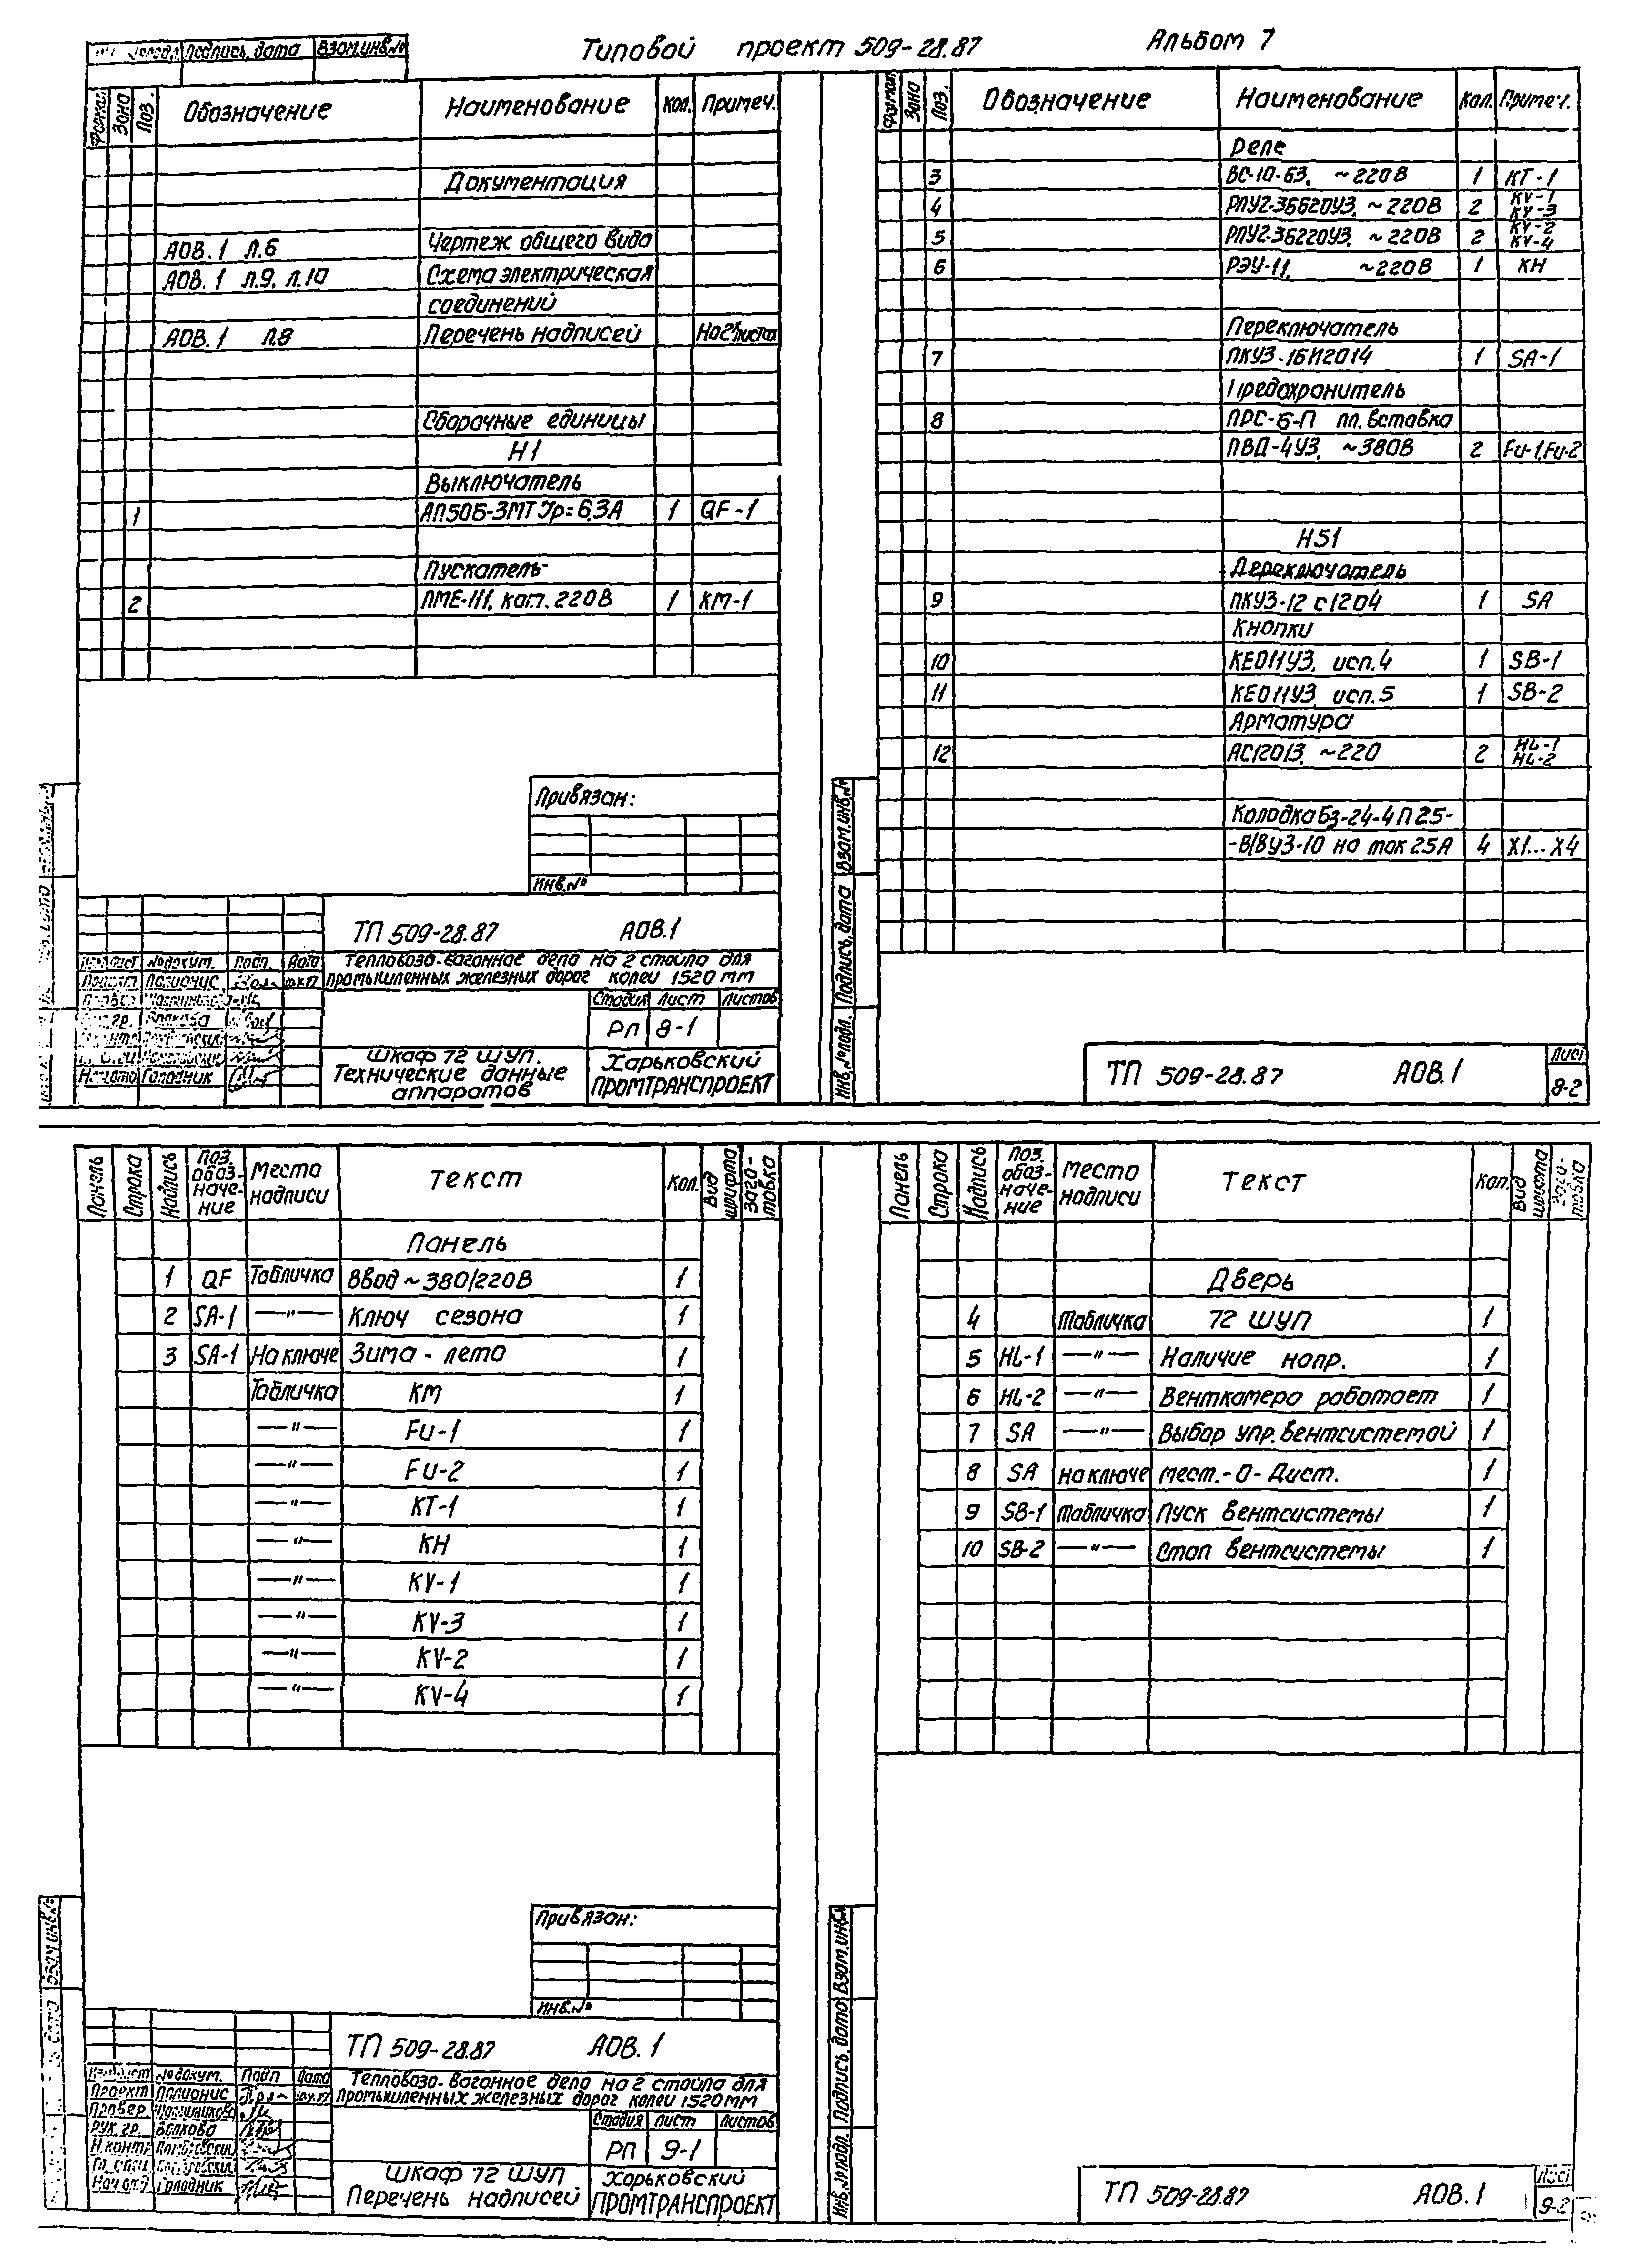 Подпись, дата Взам.инв.№
Типовой проект 509-28.87 Альбом 7
Формат Зона Поз. Обозначение Наименование Кол. Примеч.
Документация
АОВ.1 л.6 Чертеж общего вида
АОВ.1 л.9, л.10 Схема электрическая
соединений
АОВ.1 л.8 Перечень надписей На 2х листах
Сборочные единицы
Н1
Выключатель
1 АП50Б-3МТ Jр=6,3А 1 QF-1
Пускатель
2 ПМЕ-111, кат. 220В 1 КМ-1
Привязан:
Инв.№
ТП 509-28.87 АОВ.1
Тепловозо-вагонное депо на 2 стойла для
промышленных железных дорог колеи 1520 мм
№ докум. Подп. Дата
Полионис
Волкова
Голодник
Стадия Лист Листов
РП 8-1
Шкаф 72 ШУП.
Технические данные
аппаратов
Харьковский
ПРОМТРАНСПРОЕКТ
Формат Зона Поз. Обозначение Наименование Кол. Примеч.
Реле
3 ВС-10-63, ~220В 1 КТ-1
4 РПУ2-36620У3, ~220В 2 KV-1 KV-3
5 РПУ2-36220У3, ~220В 2 KV-2 KV-4
6 РЭУ-11, ~220В 1 КН
Переключатель
7 ПКУ3-16И2014 1 SA-1
Предохранитель
8 ПРС-6-П пл. вставка
ПВД-4У3, ~380В 2 Fu-1, Fu-2
Н51
Переключатель
9 ПКУ3-12 С1204 1 SA
Кнопки
10 КЕ011У3, исп.4 1 SB-1
11 КЕ011У3, исп.5 1 SB-2
Арматура
12 АС12013, ~220 2 HL-1 HL-2
Колодка Бз-24-4П25-
-В/ВУ3-10 на ток 25А 4 X1...X4
Инв.№подл. Подпись, дата Взам.инв.№
ТП 509-28.87 АОВ.1 Лист
8-2
Панель Строка Надпись Поз. обоз-наче-ние Место надписи Текст Кол. Вид шрифта Заго-товка
Панель
1 QF Табличка Ввод ~380/220В 1
2 SA-1 —"— Ключ сезона 1
3 SA-1 На ключе Зима - лето 1
Табличка КМ 1
—"— Fu-1 1
—"— Fu-2 1
—"— КТ-1 1
—"— КН 1
—"— KV-1 1
—"— KV-3 1
—"— KV-2 1
—"— KV-4 1
Привязан:
Инв.№
ТП 509-28.87 АОВ.1
Тепловозо-вагонное депо на 2 стойла для
промышленных железных дорог колеи 1520мм
№ докум. Подп Дата
Проект Полионис
Провер.
Рук.гр. Волкова
Н.контр
Гл.спец
Нач.отд Голодник
Стадия Лист Листов
РП 9-1
Шкаф 72 ШУП
Перечень надписей
Харьковский
ПРОМТРАНСПРОЕКТ
Панель Строка Надпись Поз. обоз-наче-ние Место надписи Текст Кол. Вид шрифта
Дверь
4 Табличка 72 ШУП 1
5 HL-1 —"— Наличие напр. 1
6 HL-2 —"— Венткамера работает 1
7 SA —"— Выбор упр. вентсистемой 1
8 SA на ключе мест.-0-Дист. 1
9 SB-1 Табличка Пуск вентсистемы 1
10 SB-2 —"— Стоп вентсистемы 1
Инв.№подл. Подпись, дата Взам.инв.№
ТП 509-28.87 АОВ.1 Лист
9-2